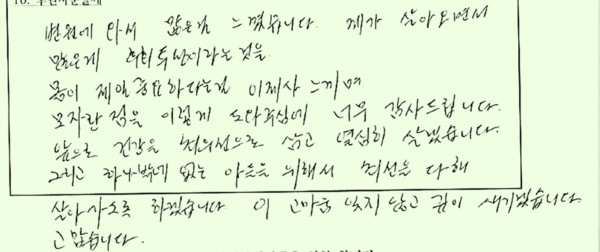 병원에 와서 많은걸 느꼈습니다. 제가 살아오면서
많은게 허비투성이라는 것을
몸이 제일 중요하다는걸 이제사 느끼며
모자란 점을 이렇게 도와주심에 너무 감사드립니다.
앞으로 건강을 최우선으로 삼고 열심히 살겠습니다.
그리고 하나밖에 없는 아들을 위해서 최선을 다해
살아가도록 하겠습니다 이 고마움 잊지 않고 깊이 새기겠습니다
고맙습니다.